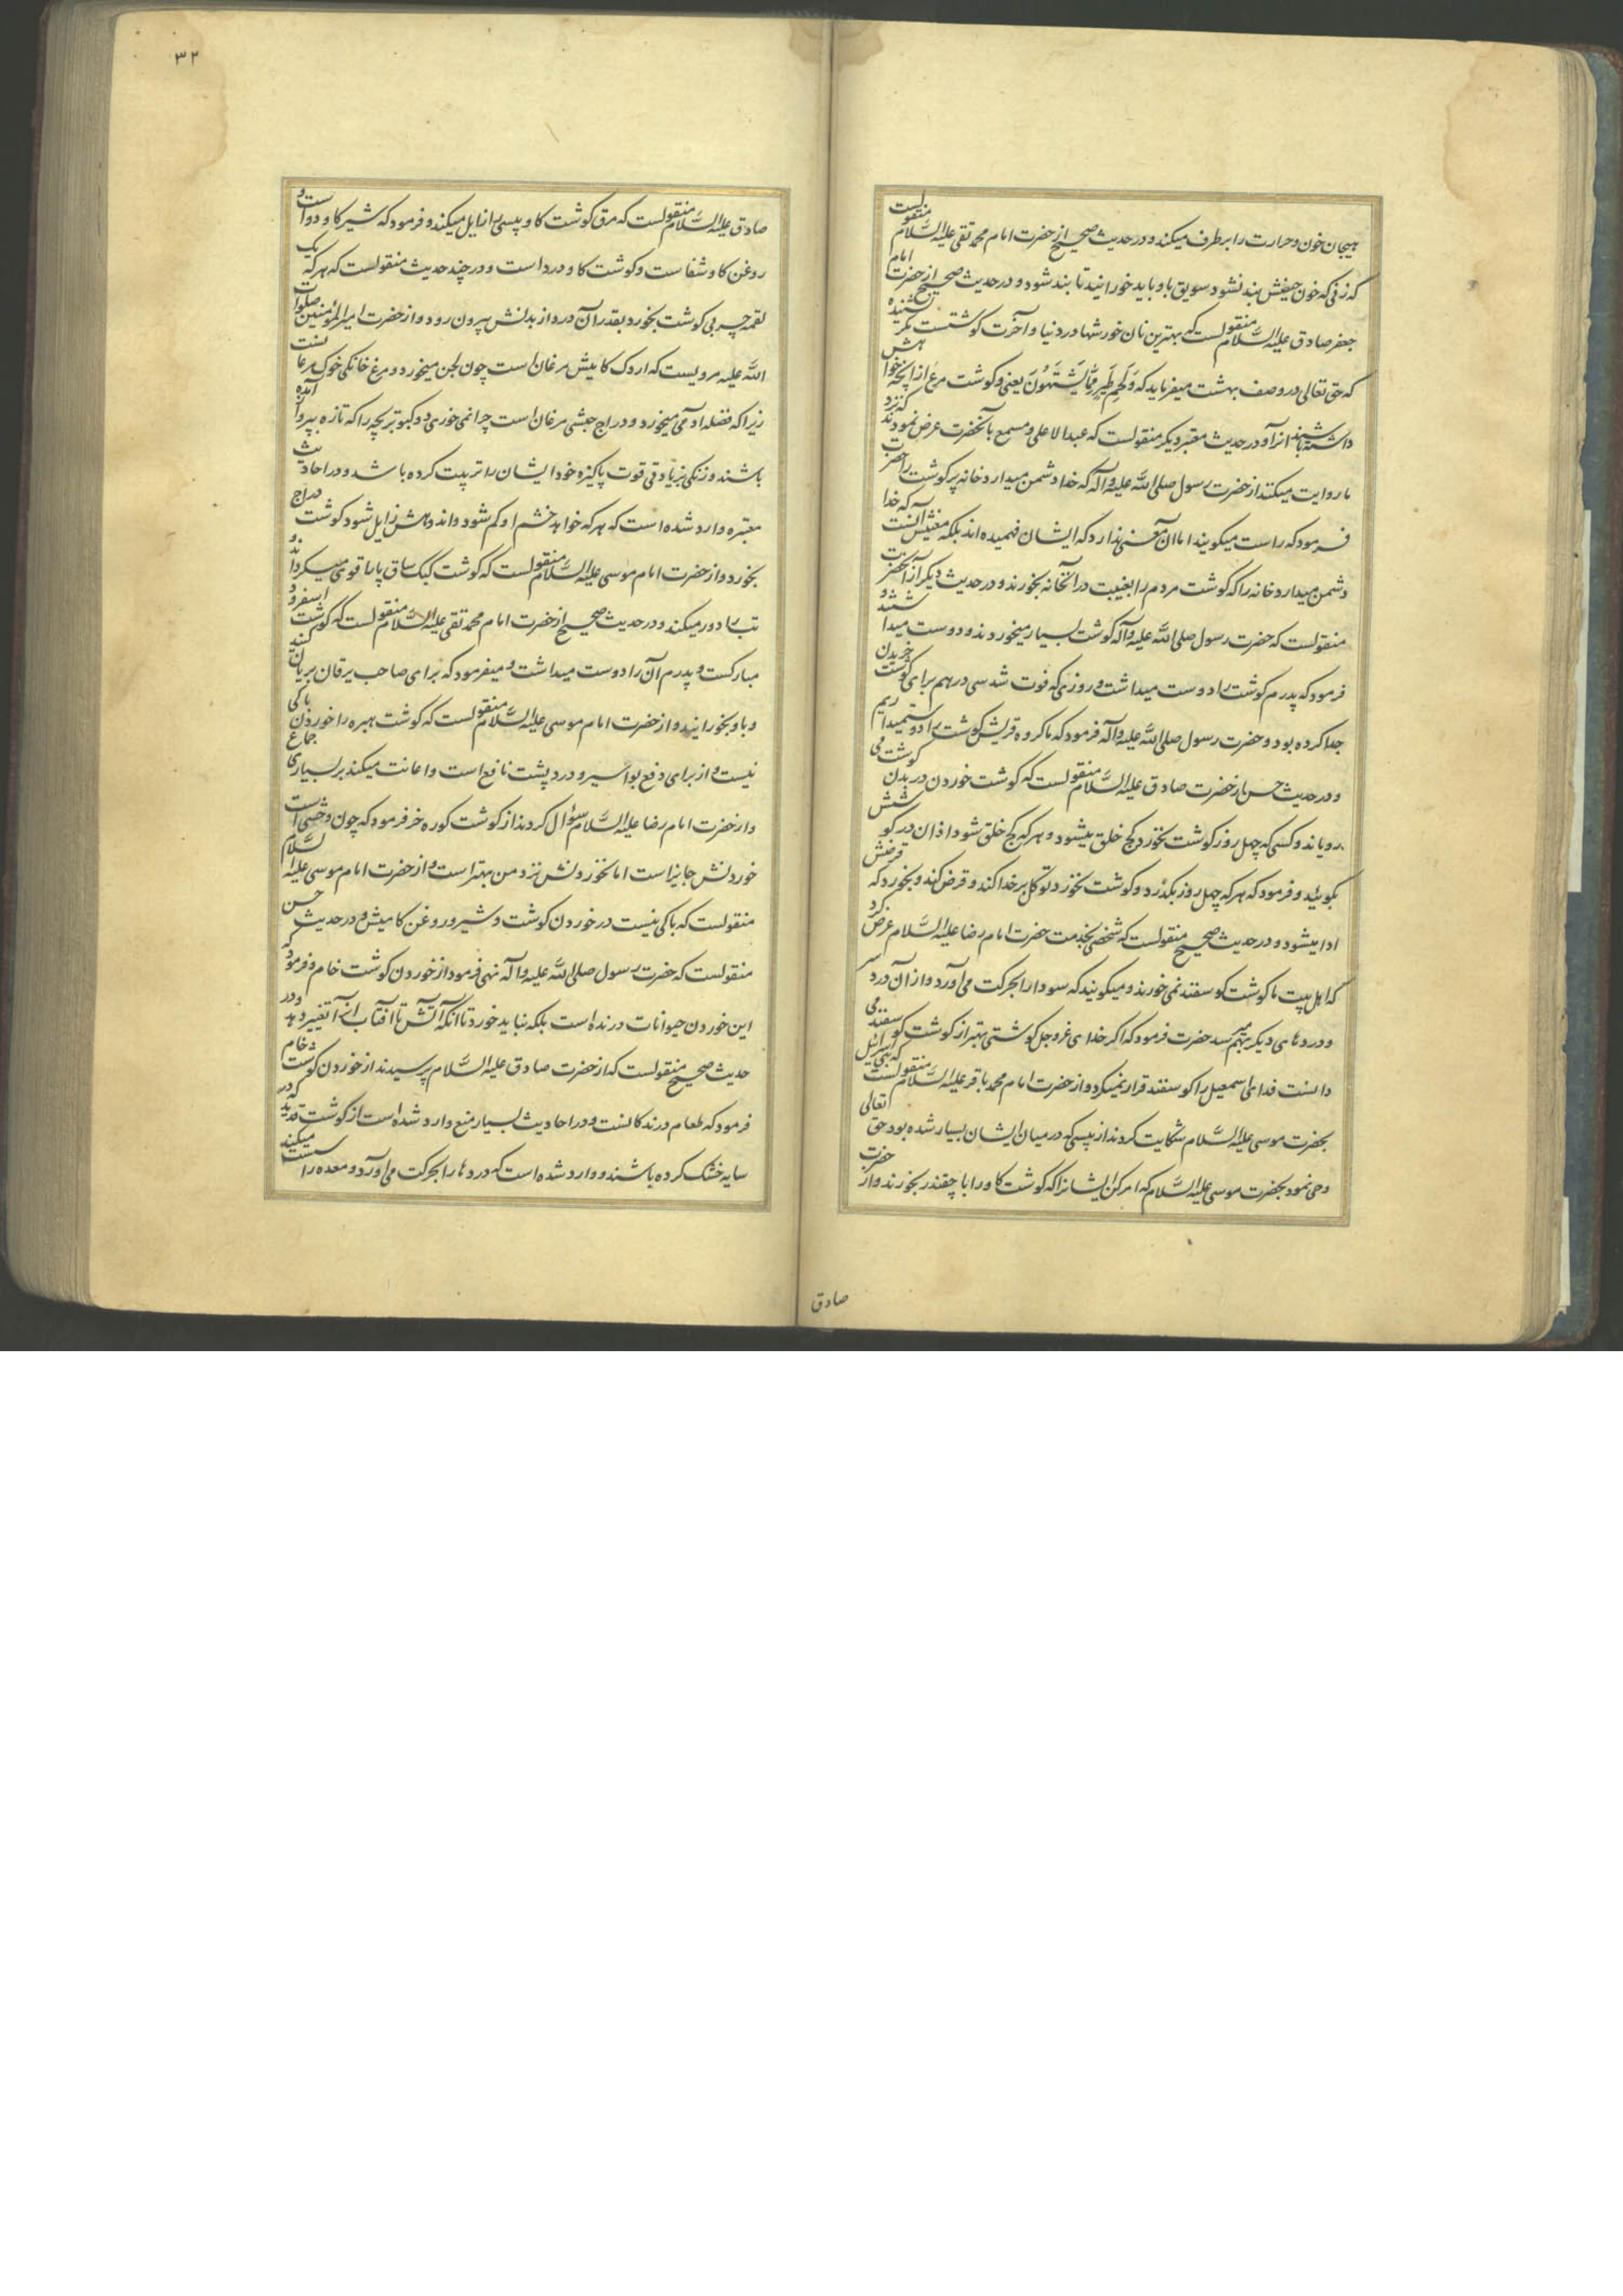 هیجان خون و حرارت را برطرف میکند و در حدیث صحیح از حضرت امام محمد تقی علیه السَّلام منقولست
که زنی که خون حیضش بند نشود سویق باو باید خورانید تا بند شود و در حدیث صحیح از حضرت امام
جعفر صادق علیه السَّلام منقولست که بهترین نان خورشها در دنیا و آخرت کوشتست مکر نشنیدهٔ
که حق تعالی در وصف بهشت میفرماید که وَلَحمِ طَیرٍ مِمَّا یَشتَهُونَ یعنی و کوشت مرغ از آنچه خواهش
داشته باشند انرا و در حدیث معتبر دیکر منقولست که عبد الاعلی و مسمع بآنحضرت عرض نمودند که نزد
ما روایت میکنند از حضرت رسول صلی اللَّه علیه وآله که خدا دشمن میدارد خانه پر کوشت را حضرت
فرمود که راست میکویند اما ان معنی ندارد که ایشان فهمیده اند بلکه معنیش آنست که خدا
دشمن میدارد خانه را که کوشت مردم را بغیبت در آنخانه بخورند و در حدیث دیکر از آنحضرت
منقولست که حضرت رسول صلی اللَّه علیه وآله کوشت بسیار میخوردند و دوست میداشتند و
فرمود که پدرم کوشت را دوست میداشت و روزی که فوت شد سی درهم برای کوشت خریدن
جدا کرده بود و حضرت رسول صلی اللَّه علیه وآله فرمود که ما کروه قریش کوشت را دوست میداریم
و در حدیث حسن از حضرت صادق علیه السَّلام منقولست که کوشت خوردن در بدن کوشت می
رویاند و کسی که چهل روز کوشت نخورد کج خلق میشود و هر که کج خلق شود اذان در کوشش
بکویید و فرمود که هر که چهل روز بکذرد و کوشت نخورد توکل بر خدا کند و قرض کند و بخورد که قرضش
ادا میشود و در حدیث صحیح منقولست که شخصی بخدمت حضرت امام رضا علیه السَّلام عرض کرد
که اهل بیت ما کوشت کوسفند نمی خورند و میکویند که سودا را بحرکت می آورد و از ان درد سر
و دردهای دیکر بهم میرسد حضرت فرمود که اکر خدای عزوجل کوشتی بهتر از کوشت کوسفند می
دانست فدای اسمعیل را کوسفند قرار نمیکرد و از حضرت امام محمد باقر علیه السَّلام منقولست که بنی اسرائیل
بحضرت موسی علیه السَّلام شکایت کردند از پیسی که در میان ایشان بسیار شده بود حق تعالی
وحی نمود بحضرت موسی علیه السَّلام که امر کن ایشانرا که کوشت کاو را با چقندر بخورند و از حضرت
صادق
۳۲
صادق علیه السَّلام منقولست که مرق کوشت کاو پیسی را زایل میکند و فرمود که شیر کاو دواست و
روغن کاو شفاست و کوشت کاو درد است و در چند حدیث منقولست که هر که یک
لقمه چربی کوشت بخورد بقدر آن درد از بدنش بیرون رود و از حضرت امیر المؤمنین صلوات
اللَّه علیه مرویست که اردک کامیش مرغان است چون لجن میخورد و مرغ خانکی خوک مرغانست
زیرا که فضله ادمی میخورد و دراج حبشی مرغان است چرا نمی خوری دو کبوتر بچه را که تازه بپرواز آمده
باشند و زنکی بزیادتی قوت پاکیزه خود ایشان را تربیت کرده باشد و در احادیث
معتبره وارد شده است که هر که خواهد خشم او کم شود و اندوهش زایل شود کوشت دراج
بخورد و از حضرت امام موسی علیه السَّلام منقولست که کوشت کبک ساق پا را قوی میکرداند و
تب را دور میکند و در حدیث صحیح از حضرت امام محمد تقی علیه السَّلام منقولست که کوشت اسفرود
مبارکست و پدرم آن را دوست میداشت و میفرمود که برای صاحب یرقان بریان کنند
و باو بخورانید و از حضرت امام موسی علیه السَّلام منقولست که کوشت هبره را خوردن باکی
نیست و از برای دفع بواسیر و درد پشت نافع است و اعانت میکند بر بسیاری جماع
و از حضرت امام رضا علیه السَّلام سؤال کردند از کوشت کوره خر فرمود که چون وحشی است
خوردنش جایز است اما نخوردنش نزد من بهتر است و از حضرت امام موسی علیه السَّلام
منقولست که باکی نیست در خوردن کوشت و شیر و روغن کامیش و در حدیث حسن
منقولست که حضرت رسول صلی اللَّه علیه وآله نهی فرمود از خوردن کوشت خام و فرمود که
این خوردن حیوانات درنده است بلکه نباید خورد تا انکه آتش یا آفتاب انرا تغییر دهد و در
حدیث صحیح منقولست که از حضرت صادق علیه السَّلام پرسیدند از خوردن کوشت خام
فرمود که طعام درندکانست و در احادیث بسیار منع وارد شده است از کوشت قدید که در
سایه خشک کرده باشند و وارد شده است که دردها را بحرکت می آورد و معده را سست میکند